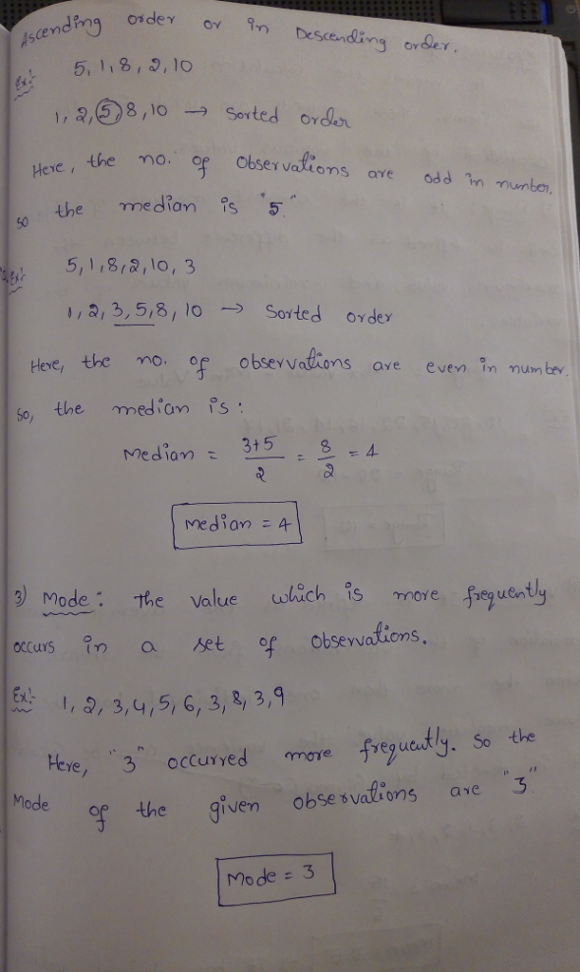 Ascending order or in Descending order.
Ex:- 5, 1, 8, 2, 10
1, 2, 5, 8, 10 → Sorted order
Here, the no. of Observations are odd in number.
so the median is "5"
Ex:- 5, 1, 8, 2, 10, 3
1, 2, 3, 5, 8, 10 → Sorted order
Here, the no. of observations are even in number.
So, the median is:
Median = 3+5/2 = 8/2 = 4
Median = 4
3) Mode: The value which is more frequently
occurs in a set of observations.
Ex:- 1, 2, 3, 4, 5, 6, 3, 8, 3, 9
Here, "3" occurred more frequently. So the
Mode of the given observations are "3"
Mode = 3